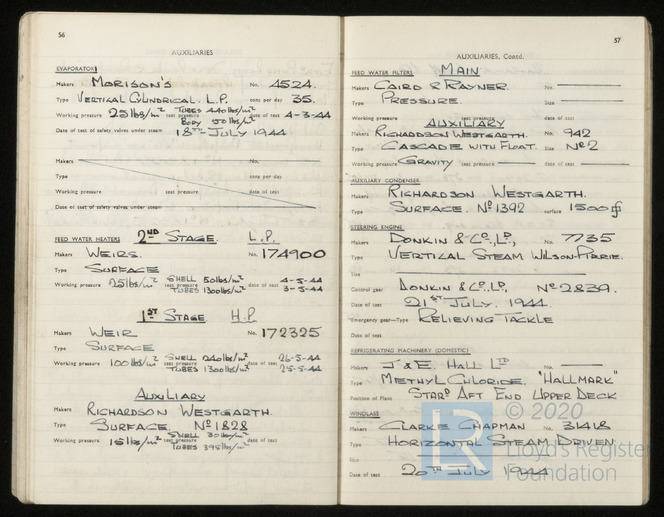 56
AUXILIARIES
EVAPORATORS
Makers MORISON'S No. 4524.
Type VERTICAL CYLINDRICAL. L.P. tons per day 35.
Working pressure 25 lbs/m² test pressure TUBES 440 lbs/m² BODY 50 lbs/m² date of test 4-3-44
Date of test of safety valves under steam 18TH JULY 1944
Makers No.
Type tons per day
Working pressure test pressure date of test
Date of test of safety valves under steam
FEED WATER HEATERS 2ND STAGE. L.P.
Makers WEIRS. No. 174900
Type SURFACE
Working pressure 25 lbs/m² test pressure SHELL 50 lbs/m² TUBES 1300 lbs/m² date of test 4-5-44 3-5-44
1ST STAGE H.P.
Makers WEIR No. 172325
Type SURFACE
Working pressure 100 lbs/m² test pressure SHELL 240 lbs/m² TUBES 1300 lbs/m² date of test 26-5-44 25-5-44
AUXILIARY
Makers RICHARDSON WESTGARTH.
Type SURFACE. No 1828
Working pressure 15 lbs/m² test pressure SHELL 30 lbs/m² TUBES 395 lbs/m² date of test
57
AUXILIARIES, Contd.
FEED WATER FILTERS MAIN
Makers CAIRD & RAYNER. No.
Type PRESSURE. Size
Working pressure test pressure date of test
AUXILIARY
Makers RICHARDSON WESTGARTH. No. 942
Type CASCADE WITH FLOAT. Size No 2
Working pressure GRAVITY test pressure date of test
AUXILIARY CONDENSER
Makers RICHARDSON WESTGARTH.
Type SURFACE. No 1392 surface 1500
STEERING ENGINE
Makers DONKIN & CO., LD, No. 7735
Type VERTICAL STEAM WILSON-PIRRIE.
Size
Control gear DONKIN & CO., LD, No 2839.
Date of test 21ST JULY. 1944.
Emergency gear—Type RELIEVING TACKLE
Date of test
REFRIGERATING MACHINERY (DOMESTIC)
Makers J & E. HALL LTD No.
Type METHYL CHLORIDE. "HALLMARK"
Position of Plant STARD AFT END UPPER DECK
WINDLASS
Makers CLARKE CHAPMAN No. 31418
Type HORIZONTAL STEAM DRIVEN
Size
Date of test 20TH JULY 1944
LR © 2020
Lloyd's Register
Foundation